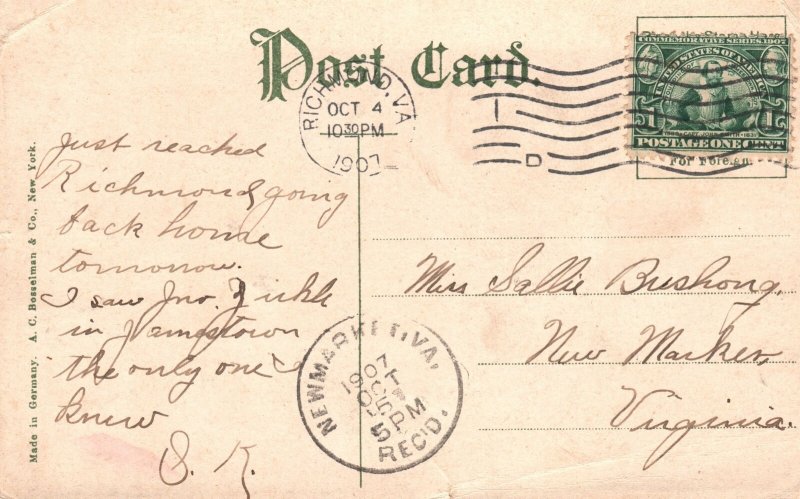 Post Card.
RICHMOND, VA.
OCT 4
10 30 PM
1907
D
COMMEMORATIVE SERIES 1907
UNITED STATES OF AMERICA
1 1
POSTAGE ONE CENT
For Foreign
Just reached
Richmond going
back home
tomorrow.
I saw Jno. Zirkle
in Jamestown
the only one I
knew
S. K.
Miss Sallie Bushong,
New Market,
Virginia.
NEWMARKET, VA.
OCT
5
PM
1907
REC'D.
Made in Germany. A. C. Bosselman & Co., New York.